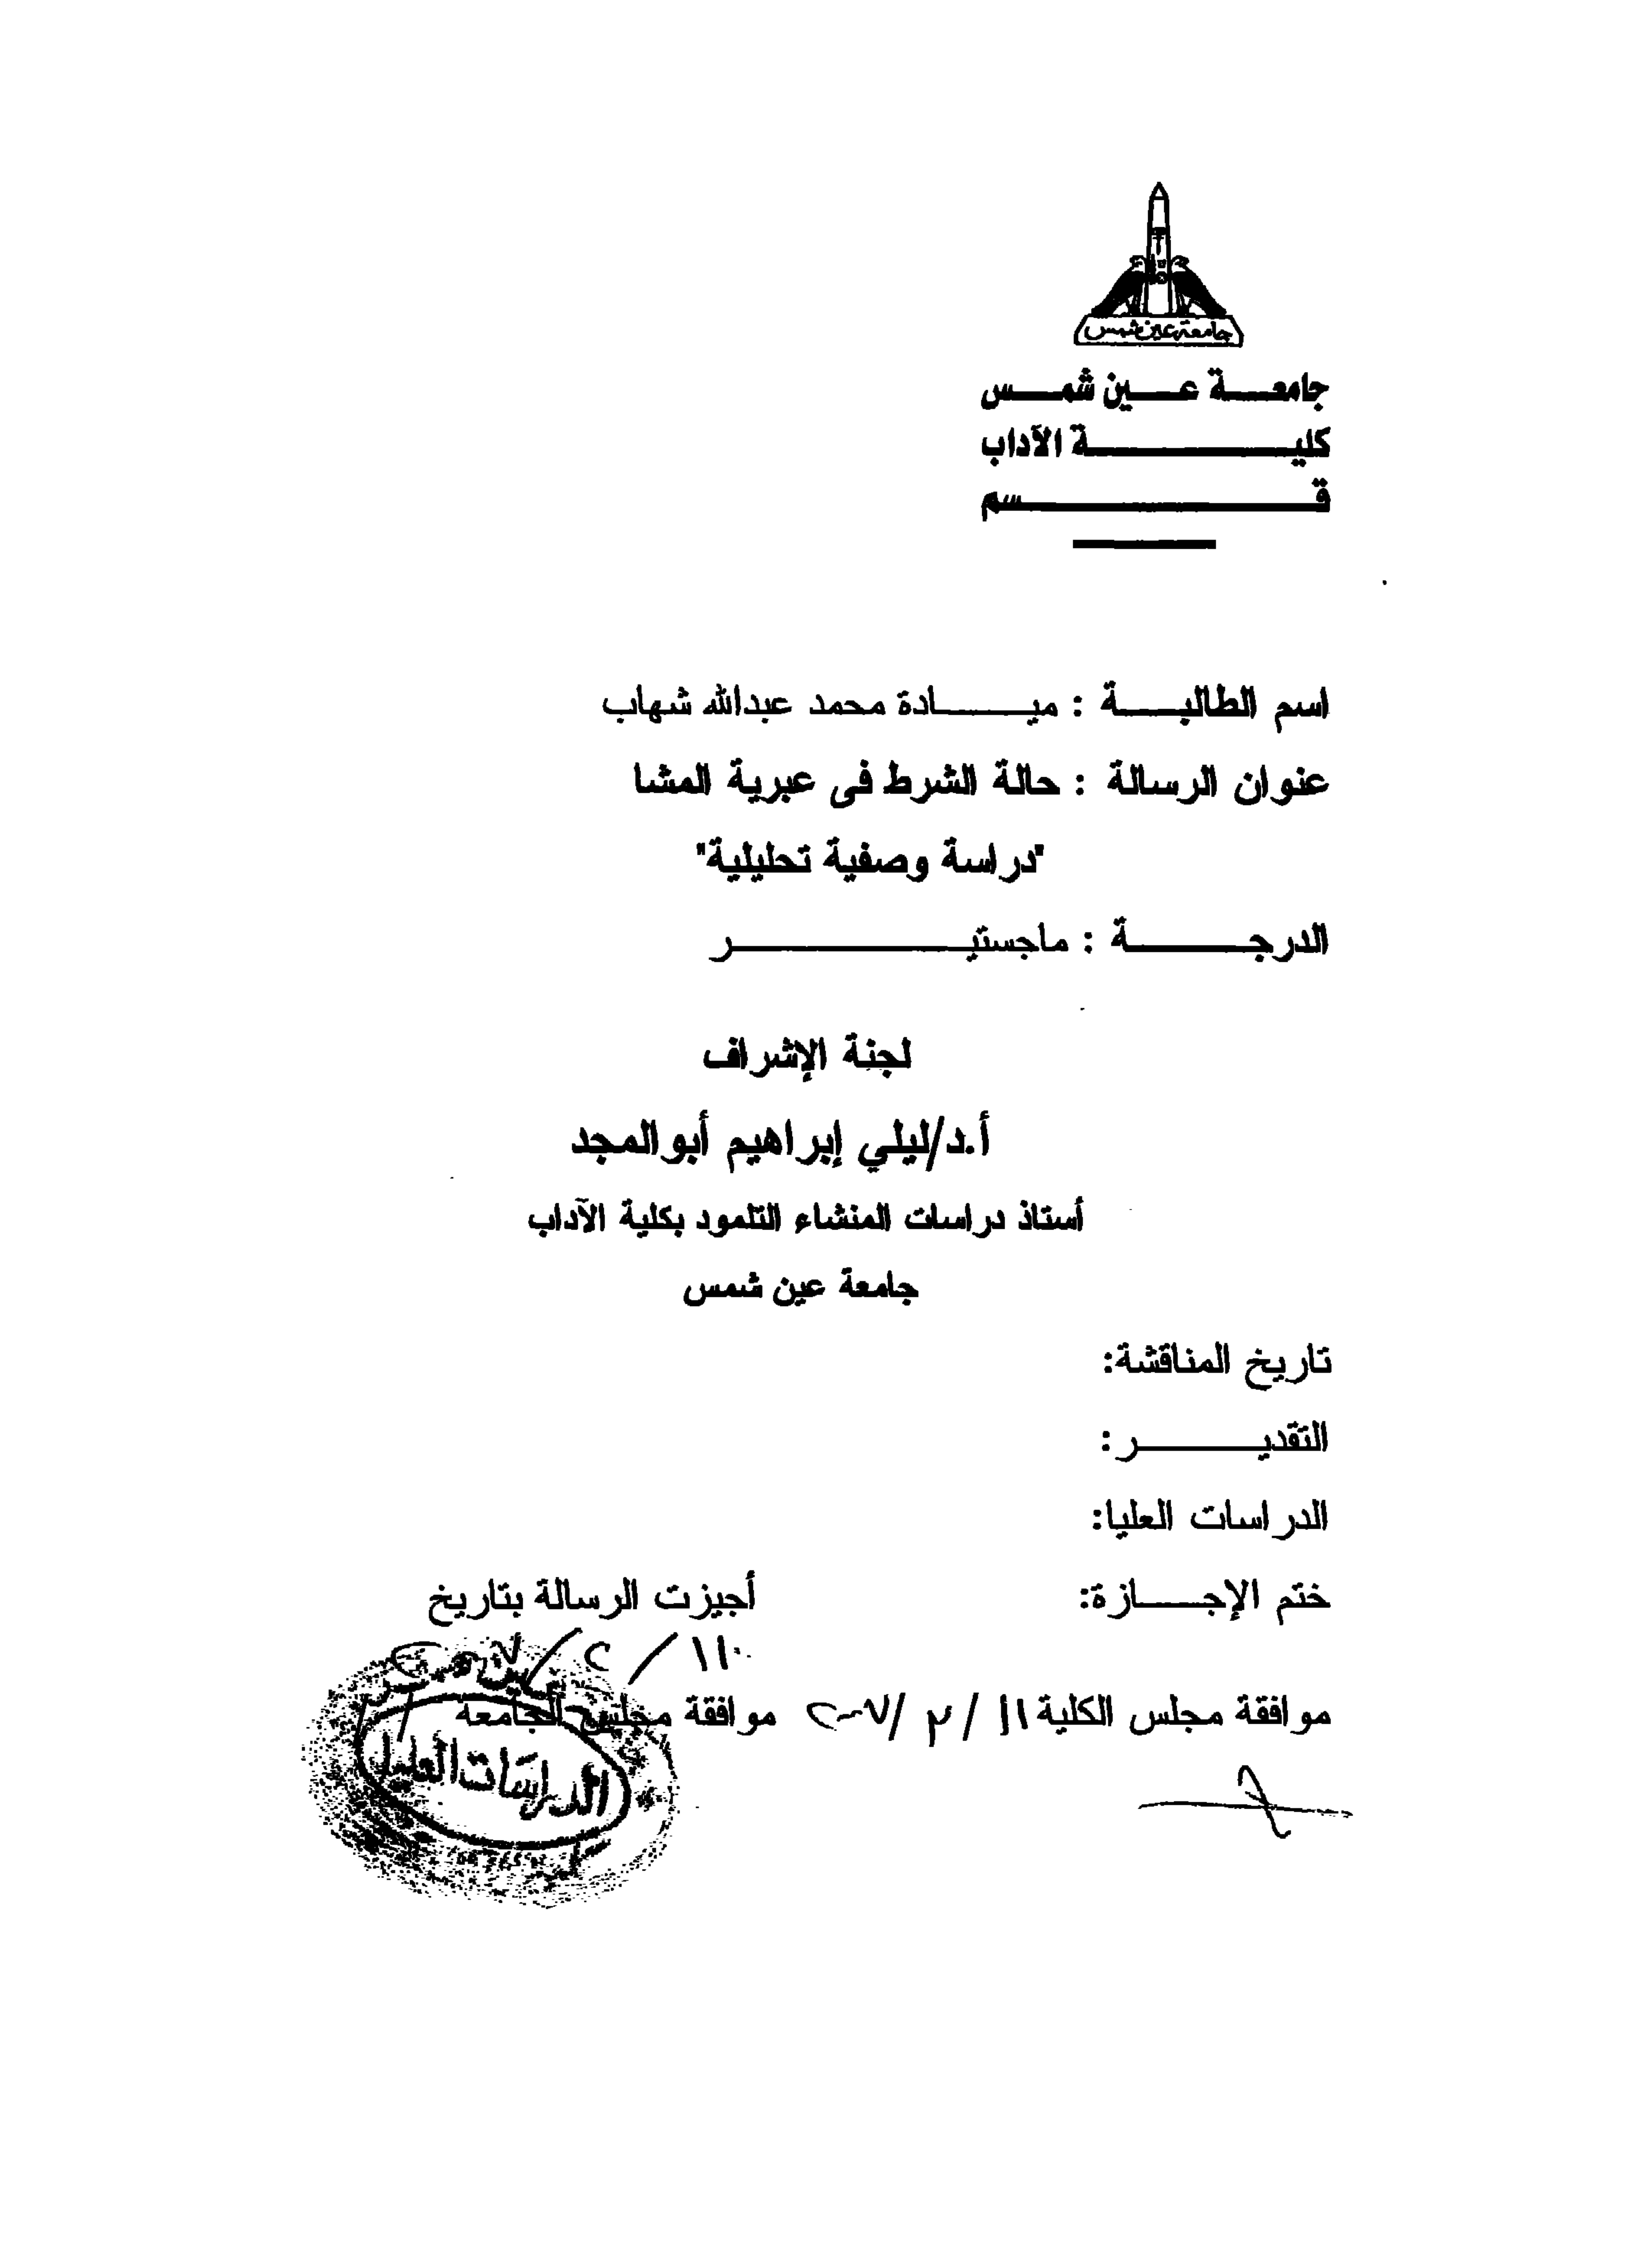 جامعة عين شمس
جامعة عين شمس
كلية الآداب
قسم
اسم الطالبة : ميادة محمد عبدالله شهاب
عنوان الرسالة : حالة الشرط فى عبرية المشا
"دراسة وصفية تحليلية"
الدرجة : ماجستير
لجنة الإشراف
أ.د/ليلي إبراهيم أبوالمجد
أستاذ دراسات المنشاء التلمود بكلية الآداب
جامعة عين شمس
تاريخ المناقشة:
التقدير:
الدراسات العليا:
ختم الإجازة: أجيزت الرسالة بتاريخ
موافقة مجلس الكلية ١١ / ٢ / ٢٠٠٧ موافقة مجلس الجامعة
الدراسات العليا